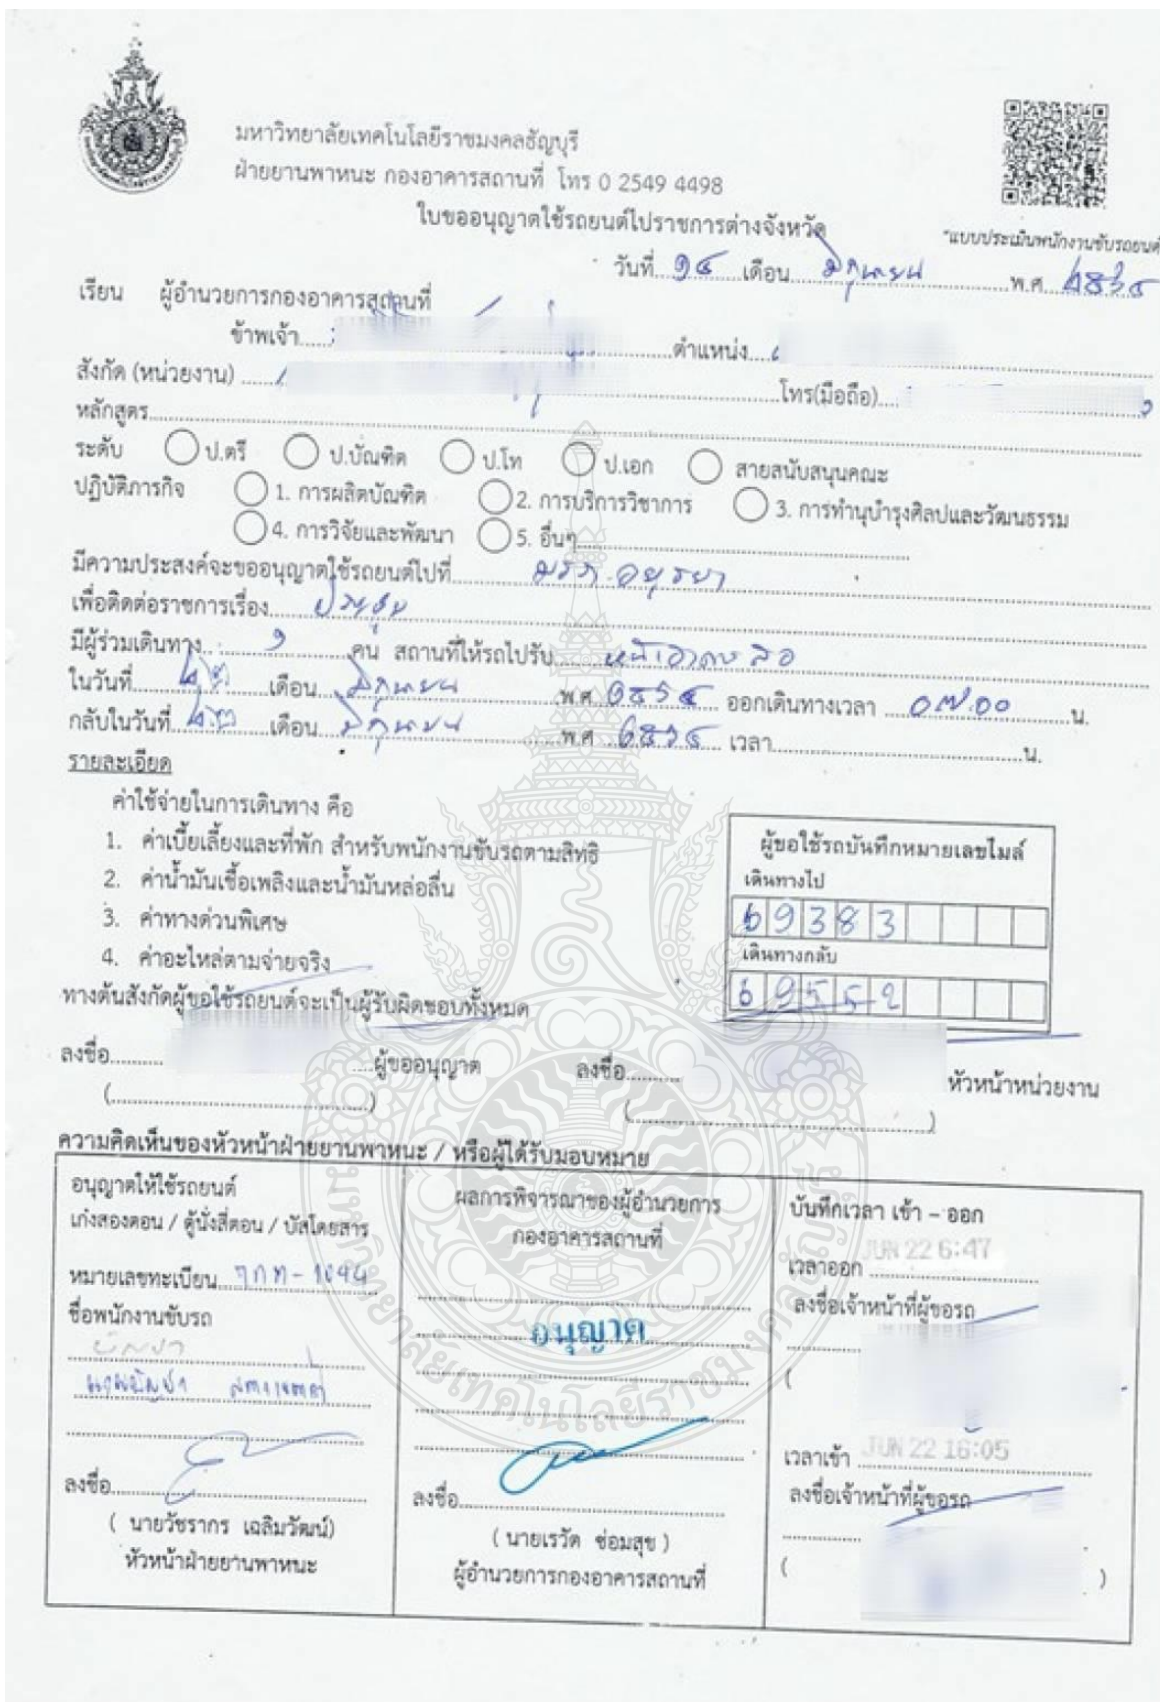 มหาวิทยาลัยเทคโนโลยีราชมงคลธัญบุรี
ฝ่ายยานพาหนะ กองอาคารสถานที่ โทร 0 2549 4498
ใบขออนุญาตใช้รถยนต์ไปราชการต่างจังหวัด
"แบบประเมินพนักงานขับรถยนต์
วันที่ ๑๔ เดือน มิถุนายน พ.ศ.
เรียน ผู้อำนวยการกองอาคารสถานที่
ข้าพเจ้า ตำแหน่ง
สังกัด (หน่วยงาน) โทร(มือถือ)
หลักสูตร
ระดับ ป.ตรี ป.บัณฑิต ป.โท ป.เอก สายสนับสนุนคณะ
ปฏิบัติภารกิจ 1. การผลิตบัณฑิต 2. การบริการวิชาการ 3. การทำนุบำรุงศิลปและวัฒนธรรม
4. การวิจัยและพัฒนา 5. อื่นๆ
มีความประสงค์จะขออนุญาตใช้รถยนต์ไปที่ มรภ.อยุธยา
เพื่อติดต่อราชการเรื่อง ประชุม
มีผู้ร่วมเดินทาง คน สถานที่ให้รถไปรับ
ในวันที่ ๒๒ เดือน มิถุนายน พ.ศ. ออกเดินทางเวลา ๐๗.๐๐ น.
กลับในวันที่ ๒๒ เดือน มิถุนายน พ.ศ. เวลา น.
รายละเอียด
ค่าใช้จ่ายในการเดินทาง คือ
1. ค่าเบี้ยเลี้ยงและที่พัก สำหรับพนักงานขับรถตามสิทธิ
2. ค่าน้ำมันเชื้อเพลิงและน้ำมันหล่อลื่น
3. ค่าทางด่วนพิเศษ
4. ค่าอะไหล่ตามจ่ายจริง
ทางต้นสังกัดผู้ขอใช้รถยนต์จะเป็นผู้รับผิดชอบทั้งหมด
ผู้ขอใช้รถบันทึกหมายเลขไมล์
เดินทางไป
69383
เดินทางกลับ
69552
ลงชื่อ ผู้ขออนุญาต
ลงชื่อ หัวหน้าหน่วยงาน
ความคิดเห็นของหัวหน้าฝ่ายยานพาหนะ / หรือผู้ได้รับมอบหมาย
อนุญาตให้ใช้รถยนต์
เก๋งสองตอน / ตู้นั่งสี่ตอน / บัสโดยสาร
หมายเลขทะเบียน
ชื่อพนักงานขับรถ
ลงชื่อ
( นายวัชรากร เฉลิมวัฒน์)
หัวหน้าฝ่ายยานพาหนะ
ผลการพิจารณาของผู้อำนวยการ
กองอาคารสถานที่
อนุญาต
ลงชื่อ
( นายเรวัด ซ่อมสุข )
ผู้อำนวยการกองอาคารสถานที่
บันทึกเวลา เข้า – ออก
เวลาออก JUN 22 6:47
ลงชื่อเจ้าหน้าที่ผู้ขอรถ
เวลาเข้า JUN 22 16:05
ลงชื่อเจ้าหน้าที่ผู้ขอรถ
มหาวิทยาลัยเทคโนโลยีราชมงคลธัญบุรี